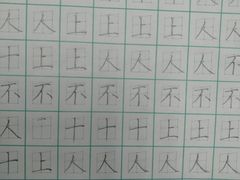 人人上上上人人人
十上上人人人人不
不不不不不不不不
人一十十十上上上
十上人人人人人人